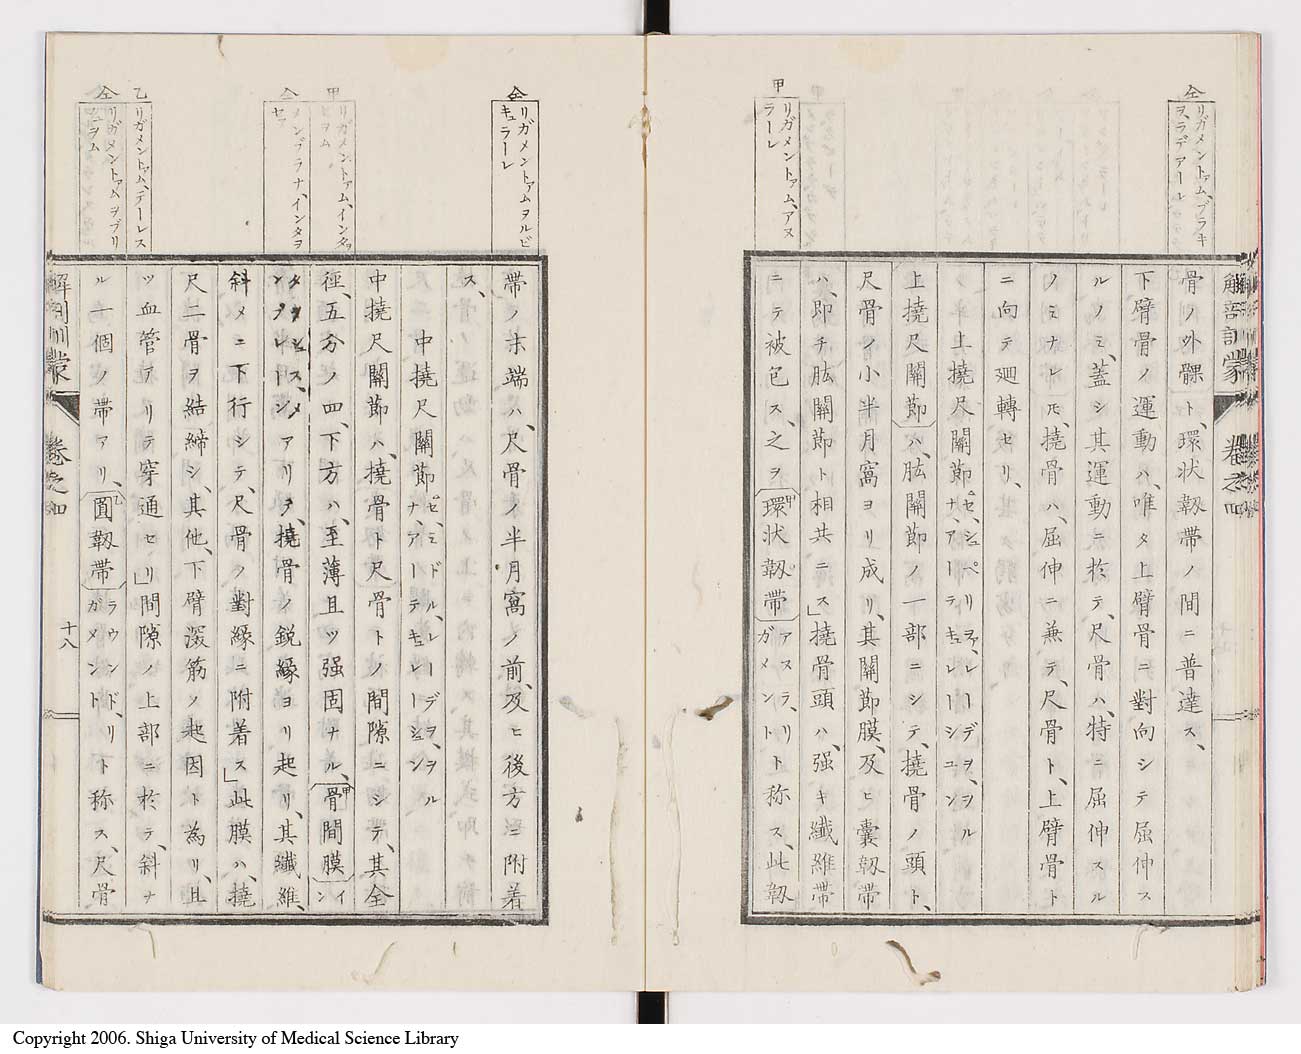 仝
リガメントァム、ブラキ
ヲ、ラデアール
骨ノ外髁ト、環状韌帯ノ間ニ普達ス、
下臂骨ノ運動ハ、唯タ上臂骨ニ對向シテ屈伸ス
ルノミ、蓋シ其運動ニ於テ、尺骨ハ、特ニ屈伸スル
ノミナレ𪜈、撓骨ハ、屈伸ニ兼テ、尺骨ト、上臂骨ト
ニ向テ廻轉セリ、
上撓尺關節ペゼ、シュペリヲァ、レーデヲ、ヲルナ、アーテキュレーシュン
上撓尺關節ハ、肱關節ノ一部ニシテ、撓骨ノ頭ト、
尺骨ノ小半月窩ヨリ成リ、其關節膜、及ヒ嚢韌帯
ハ、即チ肱關節ト相共ニス」撓骨頭ハ、强キ纎維帯
甲
リガメントァム、アヌ
ラーレ
ニテ被包ス、之ヲ甲環状韌帯アヌラ、リガメントト称ス、此韌
解剖訓蒙 卷之四
仝
リガメントァムヲルビ
キュラーレ
帯ノ末端ハ、尺骨ノ半月窩ノ前、及ヒ後方ニ附着
ス、
中撓尺關節ペゼ、ミドル、レーデヲ、ヲルナ、アーテキュレーシュン
中撓尺關節ハ、撓骨ト尺骨トノ間隙ニシテ、其全
甲
リガメントァム、インタァ
ヒヲム
徑、五分ノ四、下方ハ、至薄且ツ强固ナル、甲骨間膜イン
仝
メンブラナ、インタヲ
セァ
タヲシス、メンブレーンアリテ、撓骨ノ鋭縁ヨリ起リ、其纎維、
斜メニ下行シテ、尺骨ノ對縁ニ附着ス」此膜ハ、撓
尺二骨ヲ結締シ、其他、下臂深筋ノ起因ト為リ、且
乙
リガメントァム、テーレス
ツ血管アリテ穿通セリ」間隙ノ上部ニ於テ、斜ナ
仝
リガメントァムヲブリ
キュヲム
ル一個ノ帯アリ、乙圓韌帯ラウンド、リガメントト称ス、尺骨
解剖訓蒙 卷之四 十八
Copyright 2006. Shiga University of Medical Science Library